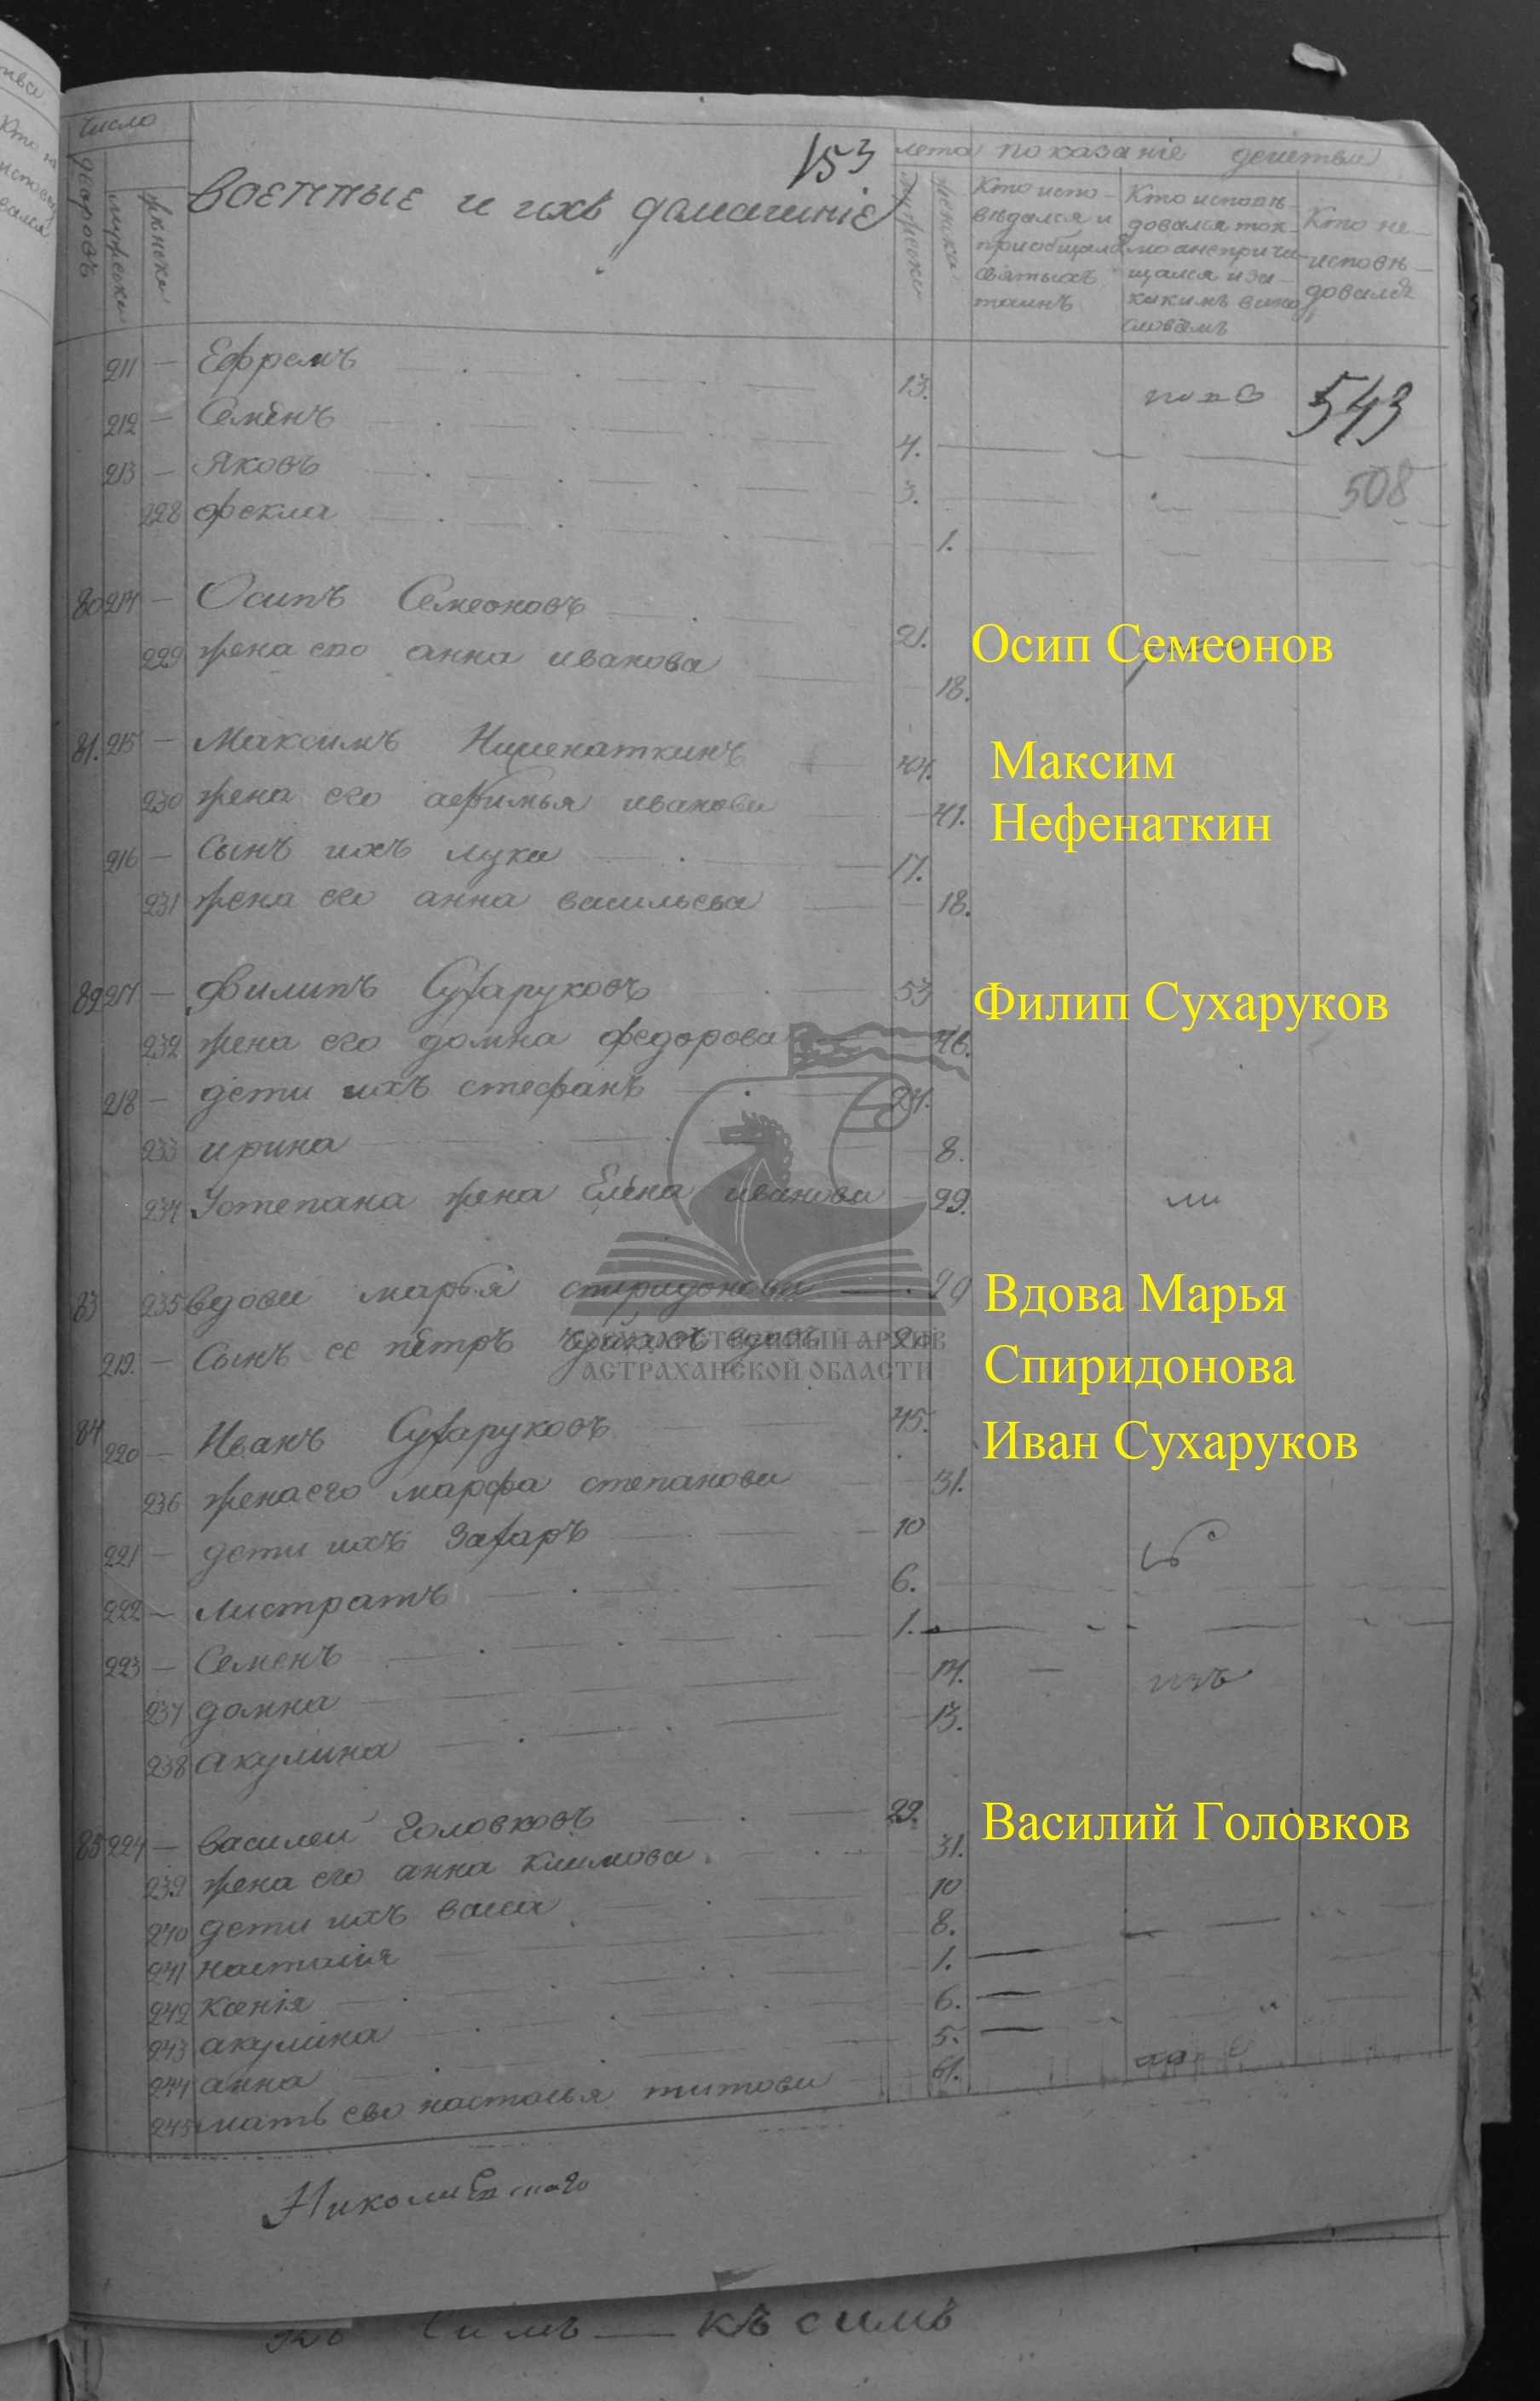 число
дворовъ
мужеска
женска
военные и ихъ домашние
153
лета
показание действа
мужеска
женска
Кто испо-
ведался и
приобщался
святыхъ
таинъ
Кто испове-
довался ток-
мо а неприча-
щался и за
какимъ вино
словiемъ
Кто не
испове-
довался
211 — Ефремъ 13.
543
212 — Семёнъ 4.
213 — Яковъ 3.
508
228 фекла 1.
80 214 — Осипъ Семеоновъ 21.
Осип Семеонов
229 жена его анна иванова 18.
81. 215 — Максимъ 44.
Максим
Нефенаткин
230 жена его афимья иванова 41.
216 — Сынъ ихъ лука 17.
231 жена его анна васильева 18.
82 217 — филипъ Сухаруковъ 53
Филип Сухаруков
232 жена его домна федорова 46.
218 — дети ихъ стефанъ 24.
233 ирина 8.
234 Устепана жена Елена иванова 29.
83 235 вдова марья спиридонова
Вдова Марья
Спиридонова
219. — Сынъ ее петръ
ГОСУДАРСТВЕННЫЙ АРХИВ
АСТРАХАНСКОЙ ОБЛАСТИ
84 220 — Иванъ Сухаруковъ 45.
Иван Сухаруков
236 жена его марфа степанова 31.
221 — дети ихъ Захаръ 10
222 — листратъ 6.
223 — Семенъ 1.
237 домна 14.
238 акулина 13.
85 224 — василеи Головковъ 29.
Василий Головков
239 жена его анна климова 31.
240 дети ихъ васса 10
241 насталiя 8.
242 Ксенiя 1.
243 акулина 6.
244 анна 5.
245 мать ево насталья титова 61.
къ симъ